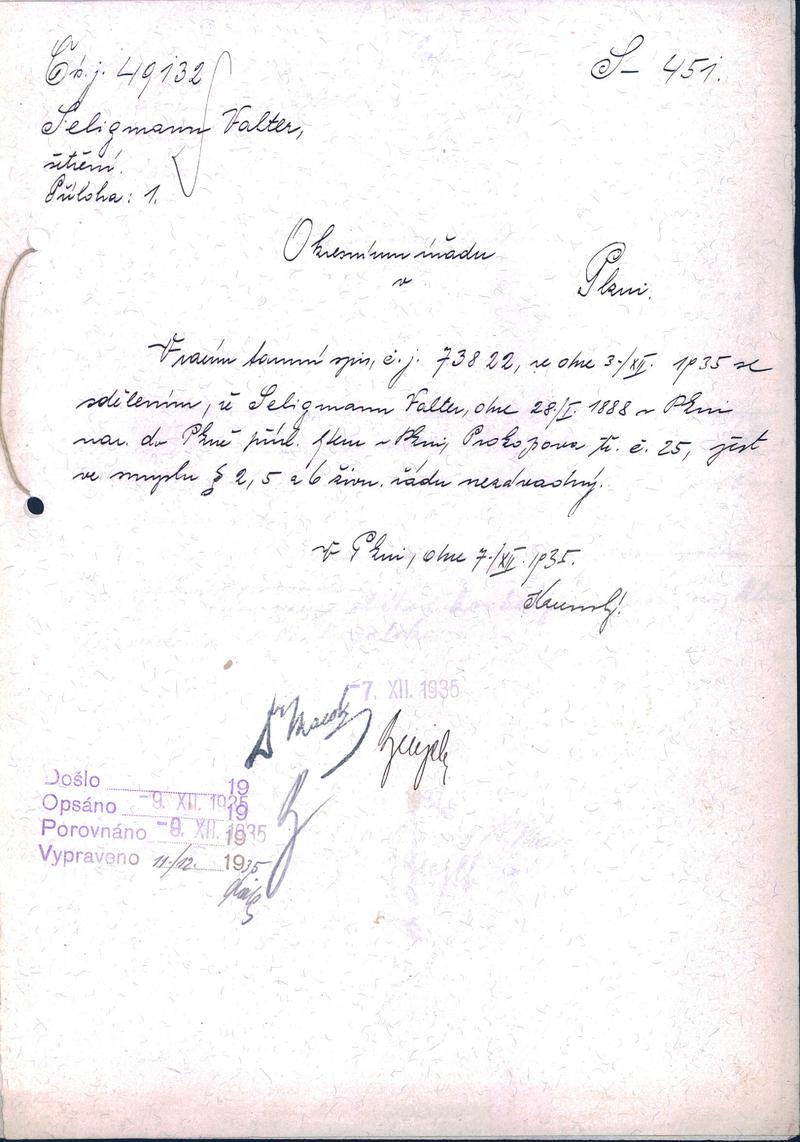 Čís. j. 49132
S- 451.
Seligmann Valter,
šetření.
Příloha: 1.
Okresnímu úřadu
v
Plzni.
Vracím tamní spis, č. j. 73822, ze dne 3./XII. 1935 se
sdělením, že Seligmann Valter, dne 28./I. 1888 v Plzni
nar. do Plzně přísl. bytem v Plzni, Prokopova tř. č. 25, jest
ve smyslu § 2, 5 a 6 živn. řádu nezávadný.
V Plzni, dne 7./XII. 1935.
-7. XII. 1935
Došlo 19
Opsáno -9. XII. 1935 19
Porovnáno -9. XII. 1935 19
Vypraveno 11./12. 1935